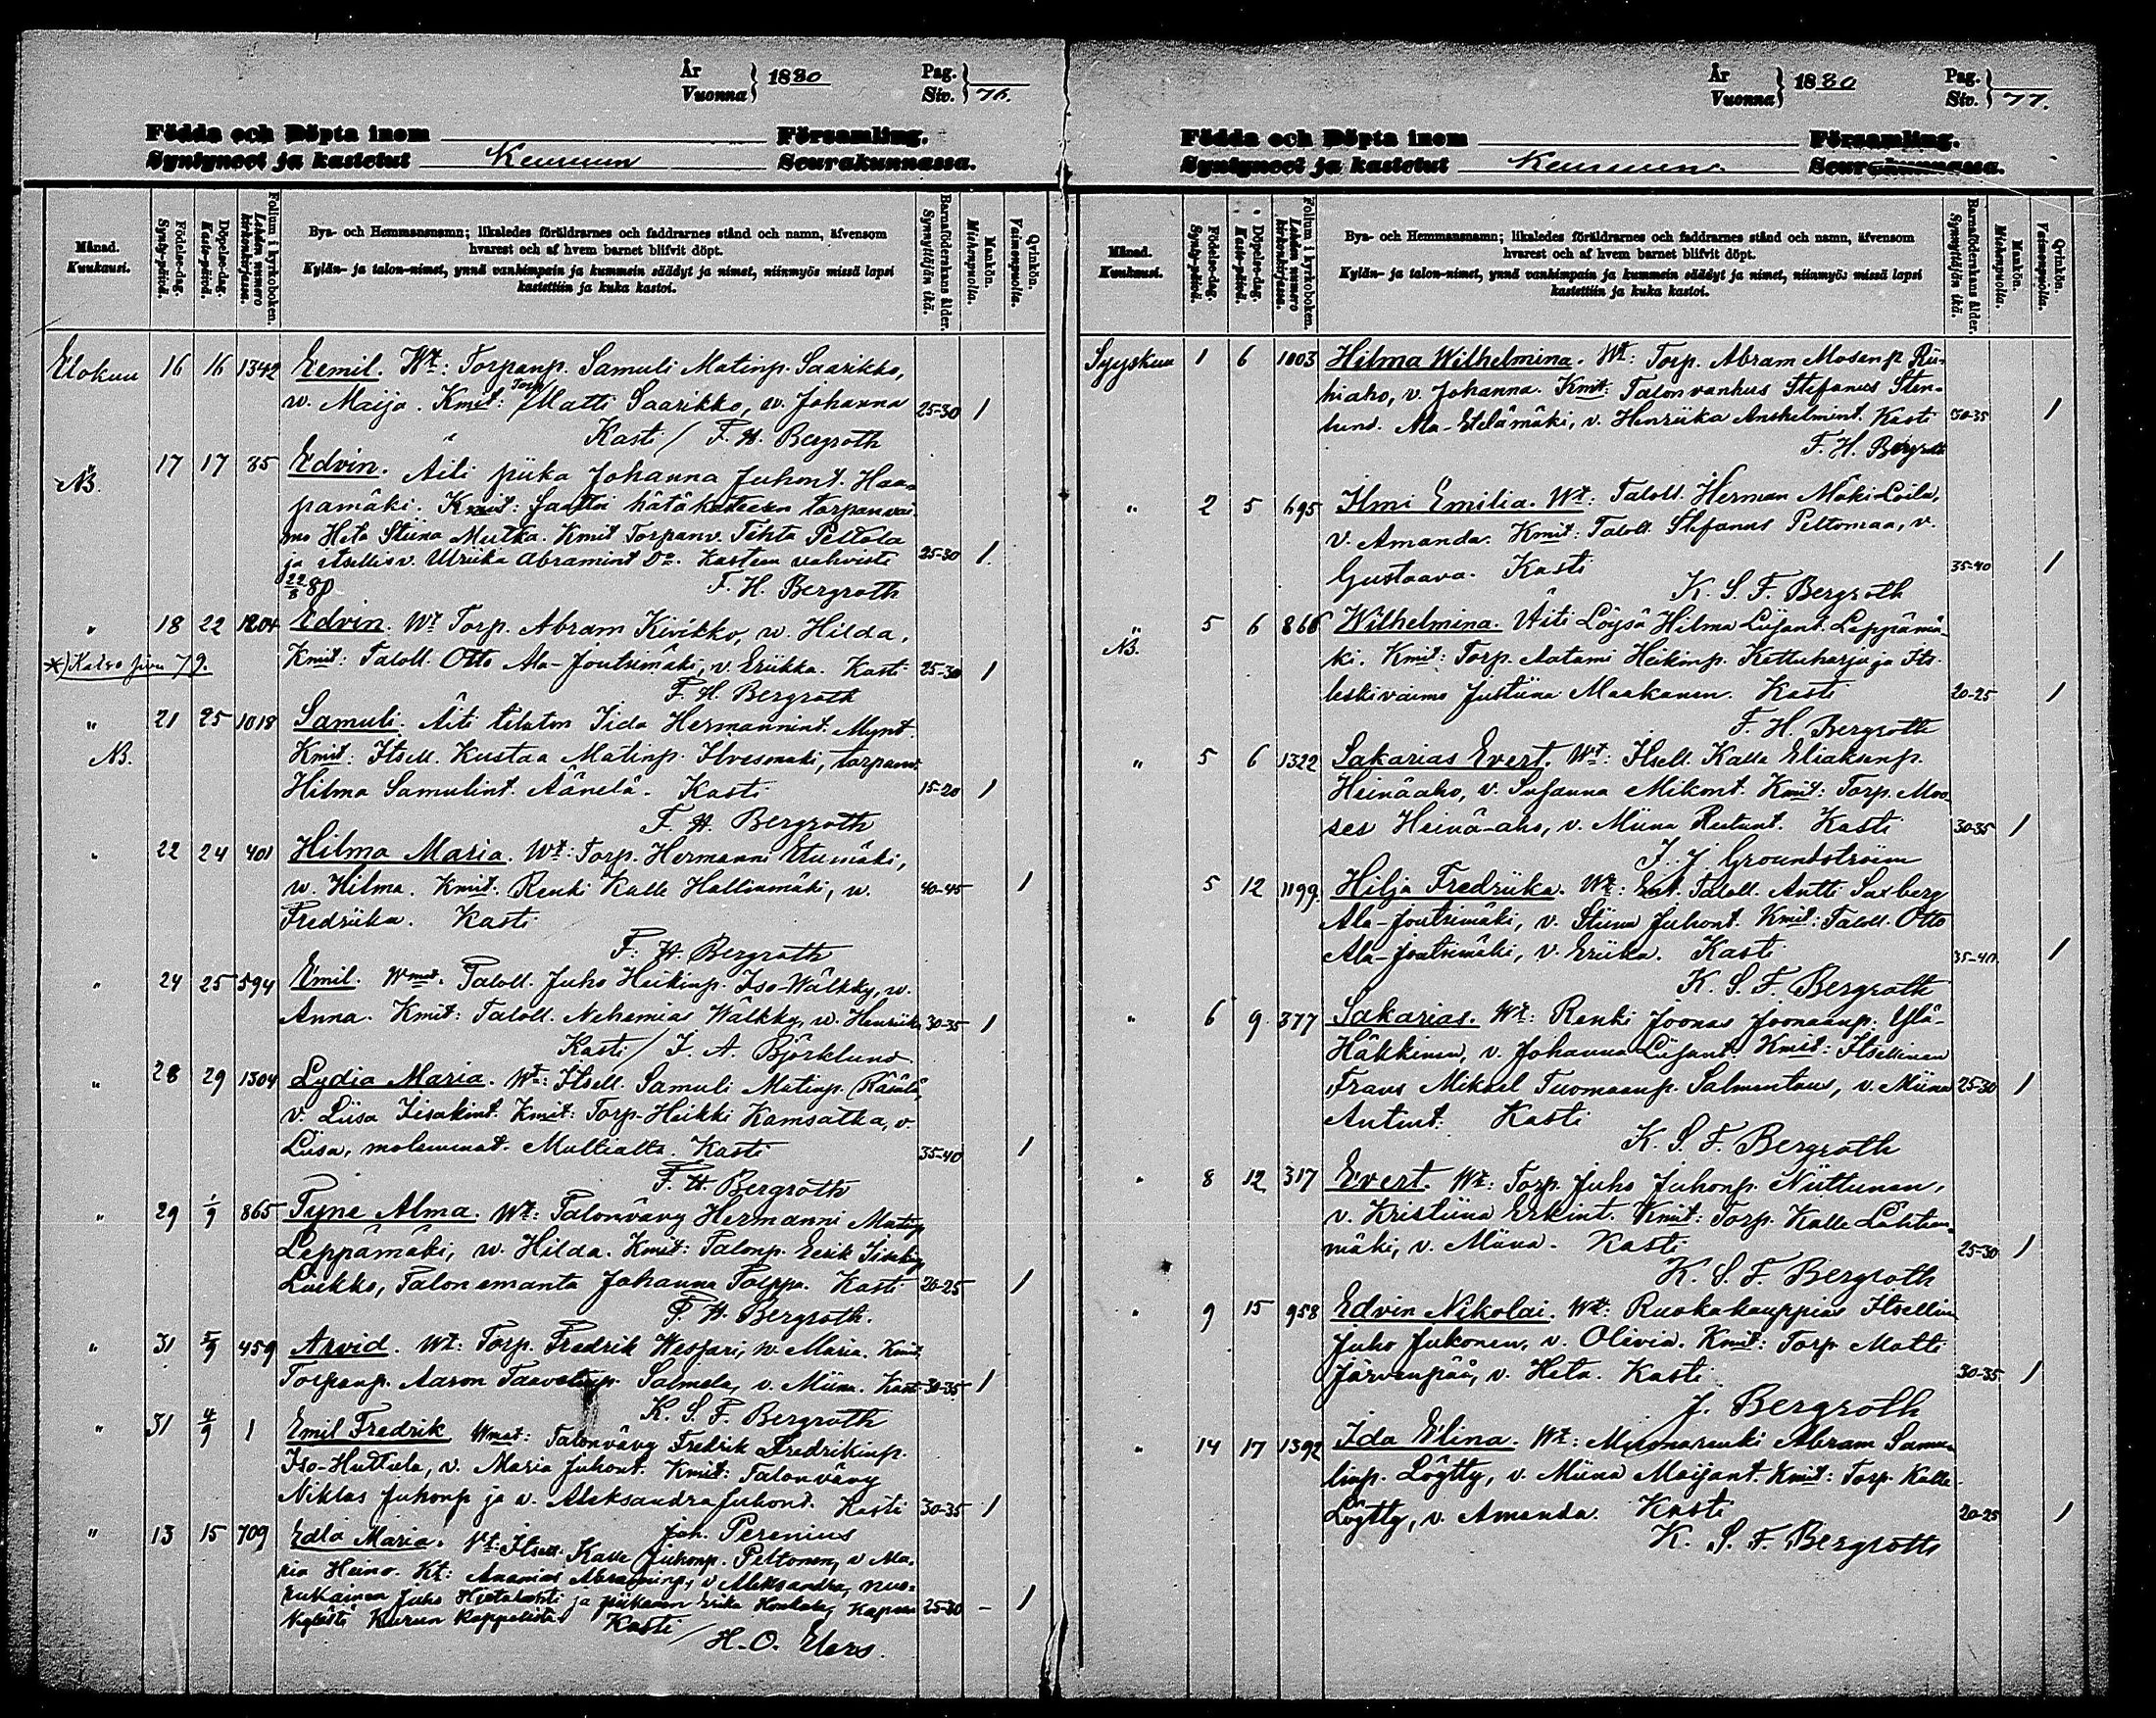 År
Vuonna } 1880
Pag.
Siv. } 76.
Födda och Döpta inom Församling.
Syntyneet ja kastetut Keuruun Seurakunnassa.
Månad.
Kuukausi.
Födelse-dag.
Synty-päivä.
Döpelse-dag.
Kaste-päivä.
Folium i kyrkoboken.
Lehden numero kirkonkirjassa.
Bya- och Hemmansnamn; likaledes föräldrarnes och faddrarnes stånd och namn, äfvensom
hvarest och af hvem barnet blifvit döpt.
Kylän- ja talon-nimet, ynnä vanhimpain ja kummein säädyt ja nimet, niinmyös missä lapsi
kastettiin ja kuka kastoi.
Barnaföderskans ålder.
Synnyttäjän ikä.
Mankön.
Miehenpuolia.
Qvinkön.
Vaimonpuolia.
Elokuu 16 16 1342 Eemil. Wt: Torpanp. Samuli Matinp. Saarikko,
w. Maija. Kmit: Torp. Matti Saarikko, w. Johanna 25-30 1
Kasti / F. H. Bergroth
" 17 17 85 Edvin. Äiti piika Johanna Juhont. Haa-
NB.
pamäki. Kmit: Saatti hätäkasteen torpanvai-
mo Heta Stiina Mutka. Kmit Torpanv. Tihta Peltola
ja itsellisv. Ulriika Abramint Do. Kasteen vahvisti 25-30 1.
22/8 80 F. H. Bergroth
" 18 22 1204 Edvin. Wt Torp. Abram Kivikko, w. Hilda.
*) Katso sivu 79.
Kmit: Taloll. Otto Ala-Joutsimäki, v. Eriikka. Kasti 25-30 1
F. H. Bergroth
" 21 25 1018 Samuli. Äiti tilatön Iida Hermannint. Mynt.
NB. Kmit: Itsell. Kustaa Matinp. Ilvesmäki, torpanv.
Hilma Samulint. Äänelä. Kasti 15-20 1
F. H. Bergroth
" 22 24 401 Hilma Maria. Wt: Torp. Hermanni Etumäki,
w. Hilma. Kmit: Renki Kalle Hallinmäki, w. 40-45 1
Fredriika. Kasti
F. H. Bergroth
" 24 25 594 Emil. Wmat. Taloll. Juho Heikinp. Iso-Wälkky, w.
Anna. Kmit: Taloll. Nehemias Wälkky, w. Henriika 30-35 1
Kasti / J. A. Björklund
" 28 29 1304 Lydia Maria. Wt: Itsell. Samuli Matinp. Räsälä,
v. Liisa Iisakint. Kmit: Torp. Heikki Kamsatka, v.
Liisa, molemmat Multialta. Kasti 35-40 1
F. H. Bergroth
" 29 1/9 865 Tyne Alma. Wt: Talonvävy Hermanni Matinp.
Leppämäki, w. Hilda. Kmit: Talonp. Eerik Iisakinp.
Liukko, Talonemanta Johanna Polppa. Kasti 20-25 1
F. H. Bergroth.
" 31 5/9 459 Arvid. Wt: Torp. Fredrik Wesjari, w. Maria. Kmit.
Torpanp. Aaron Taavetinp. Salmela, v. Miina. Kasti 30-35 1
K. S. F. Bergroth
" 31 4/9 1 Emil Fredrik Wmat: Talonvävy Fredrik Fredrikinp.
Iso-Huttula, v. Maria Juhont. Kmit: Talonvävy
Niklas Juhonp ja v. Aleksandra Juhont. Kasti 30-35 1
Joh. Perenius
" 13 15 709 Edla Maria. Vt: Itsell. Kalle Juhonp. Peltonen, v Ma-
ria Heino. Kt: Ananias Abraminp, v Aleksandra, nuo-
rukainen Juho Hietalahti ja piikanen Erika Honkala, Kapeen 25-30 - 1
kylästä Kurun Kappelista Kasti
/ H. O. Elers.
År
Vuonna } 1880
Pag.
Siv. } 77.
Födda och Döpta inom Församling.
Syntyneet ja kastetut Keuruun Seurakunnassa.
Månad.
Kuukausi.
Födelse-dag.
Synty-päivä.
Döpelse-dag.
Kaste-päivä.
Folium i kyrkoboken.
Lehden numero kirkonkirjassa.
Bya- och Hemmansnamn; likaledes föräldrarnes och faddrarnes stånd och namn, äfvensom
hvarest och af hvem barnet blifvit döpt.
Kylän- ja talon-nimet, ynnä vanhimpain ja kummein säädyt ja nimet, niinmyös missä lapsi
kastettiin ja kuka kastoi.
Barnaföderskans ålder.
Synnyttäjän ikä.
Mankön.
Miehenpuolia.
Qvinkön.
Vaimonpuolia.
Syyskuu 1 6 1003 Hilma Wilhelmina. Wt: Torp. Abram Mosenp. Rii-
hiaho, v. Johanna. Kmit: Talonvanhus Stefanus Sten-
lund. Ala-Etelämäki, v. Henriika Anshelmint. Kasti 30-35 1
F. H. Bergroth
" 2 5 695 Ilmi Emilia. Wt: Taloll. Herman Mäki-Loila,
v. Amanda. Kmit: Taloll. Stefanus Peltomaa, v.
Gustaava. Kasti 35-40 1
K. S. F. Bergroth
" 5 6 866 Wilhelmina. Äiti Löysä Hilma Liisant. Leppämä-
NB.
ki. Kmit: Torp. Aatami Heikinp. Kettuharju ja Its.
leskivaimo Justiina Maakanen. Kasti 20-25 1
F. H. Bergroth
" 5 6 1322 Sakarias Evert. Wt: Itsell. Kalle Eliaksenp.
Heinäaho, v. Susanna Mikont. Kmit: Torp. Moo-
ses Heinä-aho, v. Miina Ruitunt. Kasti 30-35 1
J. J Groundstroem
5 12 1199. Hilja Fredriika. Wt: Ent. Taloll. Antti Saxberg
Ala-Joutsimäki, v. Stiina Juhont. Kmit: Taloll. Otto
Ala-Joutsimäki, v. Eriika. Kasti 35-40 1
K. S. F. Bergroth
" 6 9 377 Sakarias. Wt: Renki Joonas Joonaanp. Ylä-
Häkkinen, v. Johanna Liisant. Kmit: Itsellinen
Frans Mikael Tuomaanp. Salmentaus, v. Miina 25-30 1
Antint. Kasti
K. S. F. Bergroth
" 8 12 317 Evert. Wt: Torp. Juho Juhonp. Niittunen,
v. Kristiina Erkint. Kmit: Torp. Kalle Lähteen-
mäki, v. Miina. Kasti 25-30 1
K. S. F. Bergroth
" 9 15 958 Edvin Nikolai. Wt: Ruokakauppias Itsellin
Juho Jukonen, v. Olivia. Kmit: Torp Matti
Järvenpää, v. Heta. Kasti 30-35 1
J. Bergroth
" 14 17 1392 Ida Elina. Wt: Muonarenki Abram Samu-
linp. Löytty, v. Miina Maijant. Kmit: Torp. Kalle
Löytty, v. Amanda. Kasti 20-25 1
K. S. F. Bergroth